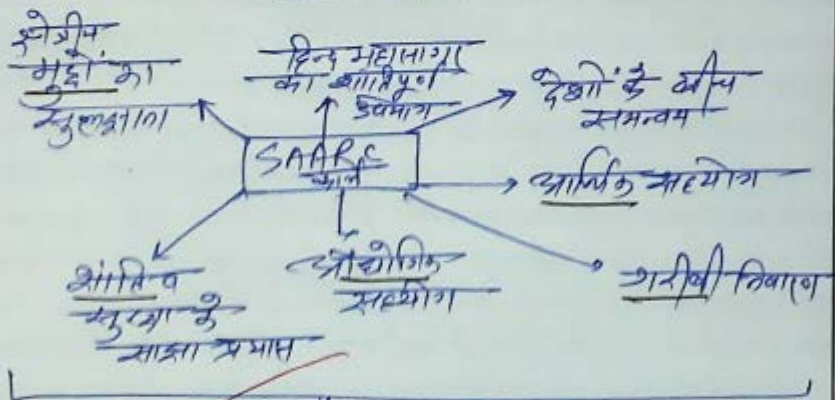 क्षेत्रीय
मुद्दों का
सुलझाना
हिन्द महासागर
का शांतिपूर्ण
उपयोग
देशों के बीच
समन्वय
SAARC
कार्य
आर्थिक सहयोग
गरीबी निवारण
औद्योगिक
सहयोग
शांति व
सुरक्षा के
साझा प्रयास